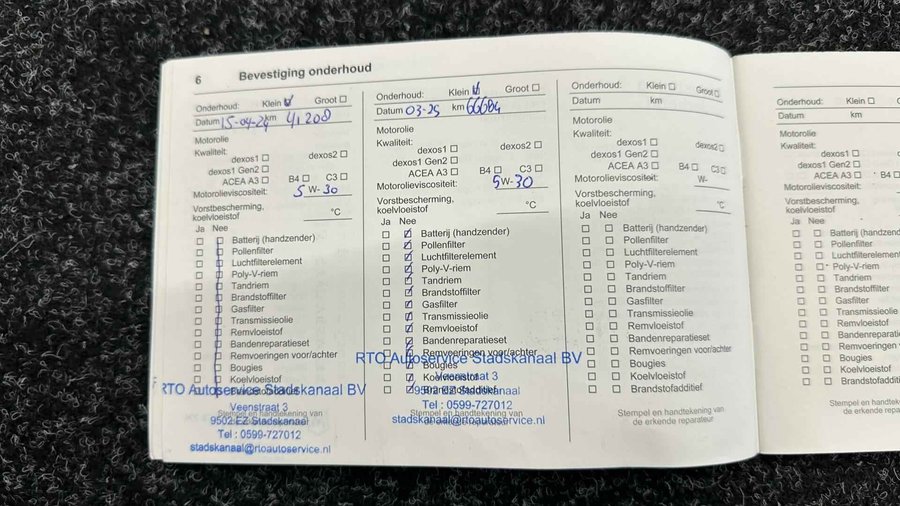 6 Bevestiging onderhoud
Onderhoud: Klein ☑ Groot ☐
Datum 15-04-24 km 41208
Motorolie
Kwaliteit:
dexos1 ☐ dexos2 ☐
dexos1 Gen2 ☐
ACEA A3 ☐ B4 ☐ C3 ☐
Motorolieviscositeit: 5 W- 30
Vorstbescherming,
koelvloeistof °C
Ja Nee
Batterij (handzender)
Pollenfilter
Luchtfilterelement
Poly-V-riem
Tandriem
Brandstoffilter
Gasfilter
Transmissieolie
Remvloeistof
Bandenreparatieset
Remvoeringen voor/achter
Bougies
Koelvloeistof
RTO Autoservice Stadskanaal BV
Veenstraat 3
Stempel en handtekening van
9502 EZ Stadskanaal
Tel : 0599-727012
stadskanaal@rtoautoservice.nl
Onderhoud: Klein ☑ Groot ☐
Datum 03-25 km 66684
Motorolie
Kwaliteit:
dexos1 ☐ dexos2 ☐
dexos1 Gen2 ☐
ACEA A3 ☐ B4 ☐ C3 ☐
Motorolieviscositeit: 5W-30
Vorstbescherming,
koelvloeistof °C
Ja Nee
Batterij (handzender)
Pollenfilter
Luchtfilterelement
Poly-V-riem
Tandriem
Brandstoffilter
Gasfilter
Transmissieolie
Remvloeistof
Bandenreparatieset
Remvoeringen voor/achter
RTO Autoservice Stadskanaal BV
Bougies
Koelvloeistof
Veenstraat 3
Brandstofadditief
9502 EZ Stadskanaal
Tel : 0599-727012
Stempel en handtekening van
de erkende reparateur
stadskanaal@rtoautoservice.nl
Onderhoud: Klein ☐ Groot ☐
Datum km
Motorolie
Kwaliteit:
dexos1 ☐ dexos2 ☐
dexos1 Gen2 ☐
ACEA A3 ☐ B4 ☐ C3 ☐
Motorolieviscositeit: W-
Vorstbescherming,
koelvloeistof °C
Ja Nee
Batterij (handzender)
Pollenfilter
Luchtfilterelement
Poly-V-riem
Tandriem
Brandstoffilter
Gasfilter
Transmissieolie
Remvloeistof
Bandenreparatieset
Remvoeringen voor/achter
Bougies
Koelvloeistof
Brandstofadditief
Stempel en handtekening van
de erkende reparateur
Onderhoud: Klein ☐ G
Datum km
Motorolie
Kwaliteit:
dexos1 ☐
dexos1 Gen2 ☐
ACEA A3 ☐ B4
Motorolieviscositeit:
Vorstbescherming,
koelvloeistof
Ja Nee
Batterij (handzend
Pollenfilter
Luchtfilterelement
Poly-V-riem
Tandriem
Brandstoffilter
Gasfilter
Transmissieolie
Remvloeistof
Bandenreparatie
Remvoeringen v
Bougies
Koelvloeistof
Brandstofadditi
Stempel en handteke
de erkende repara